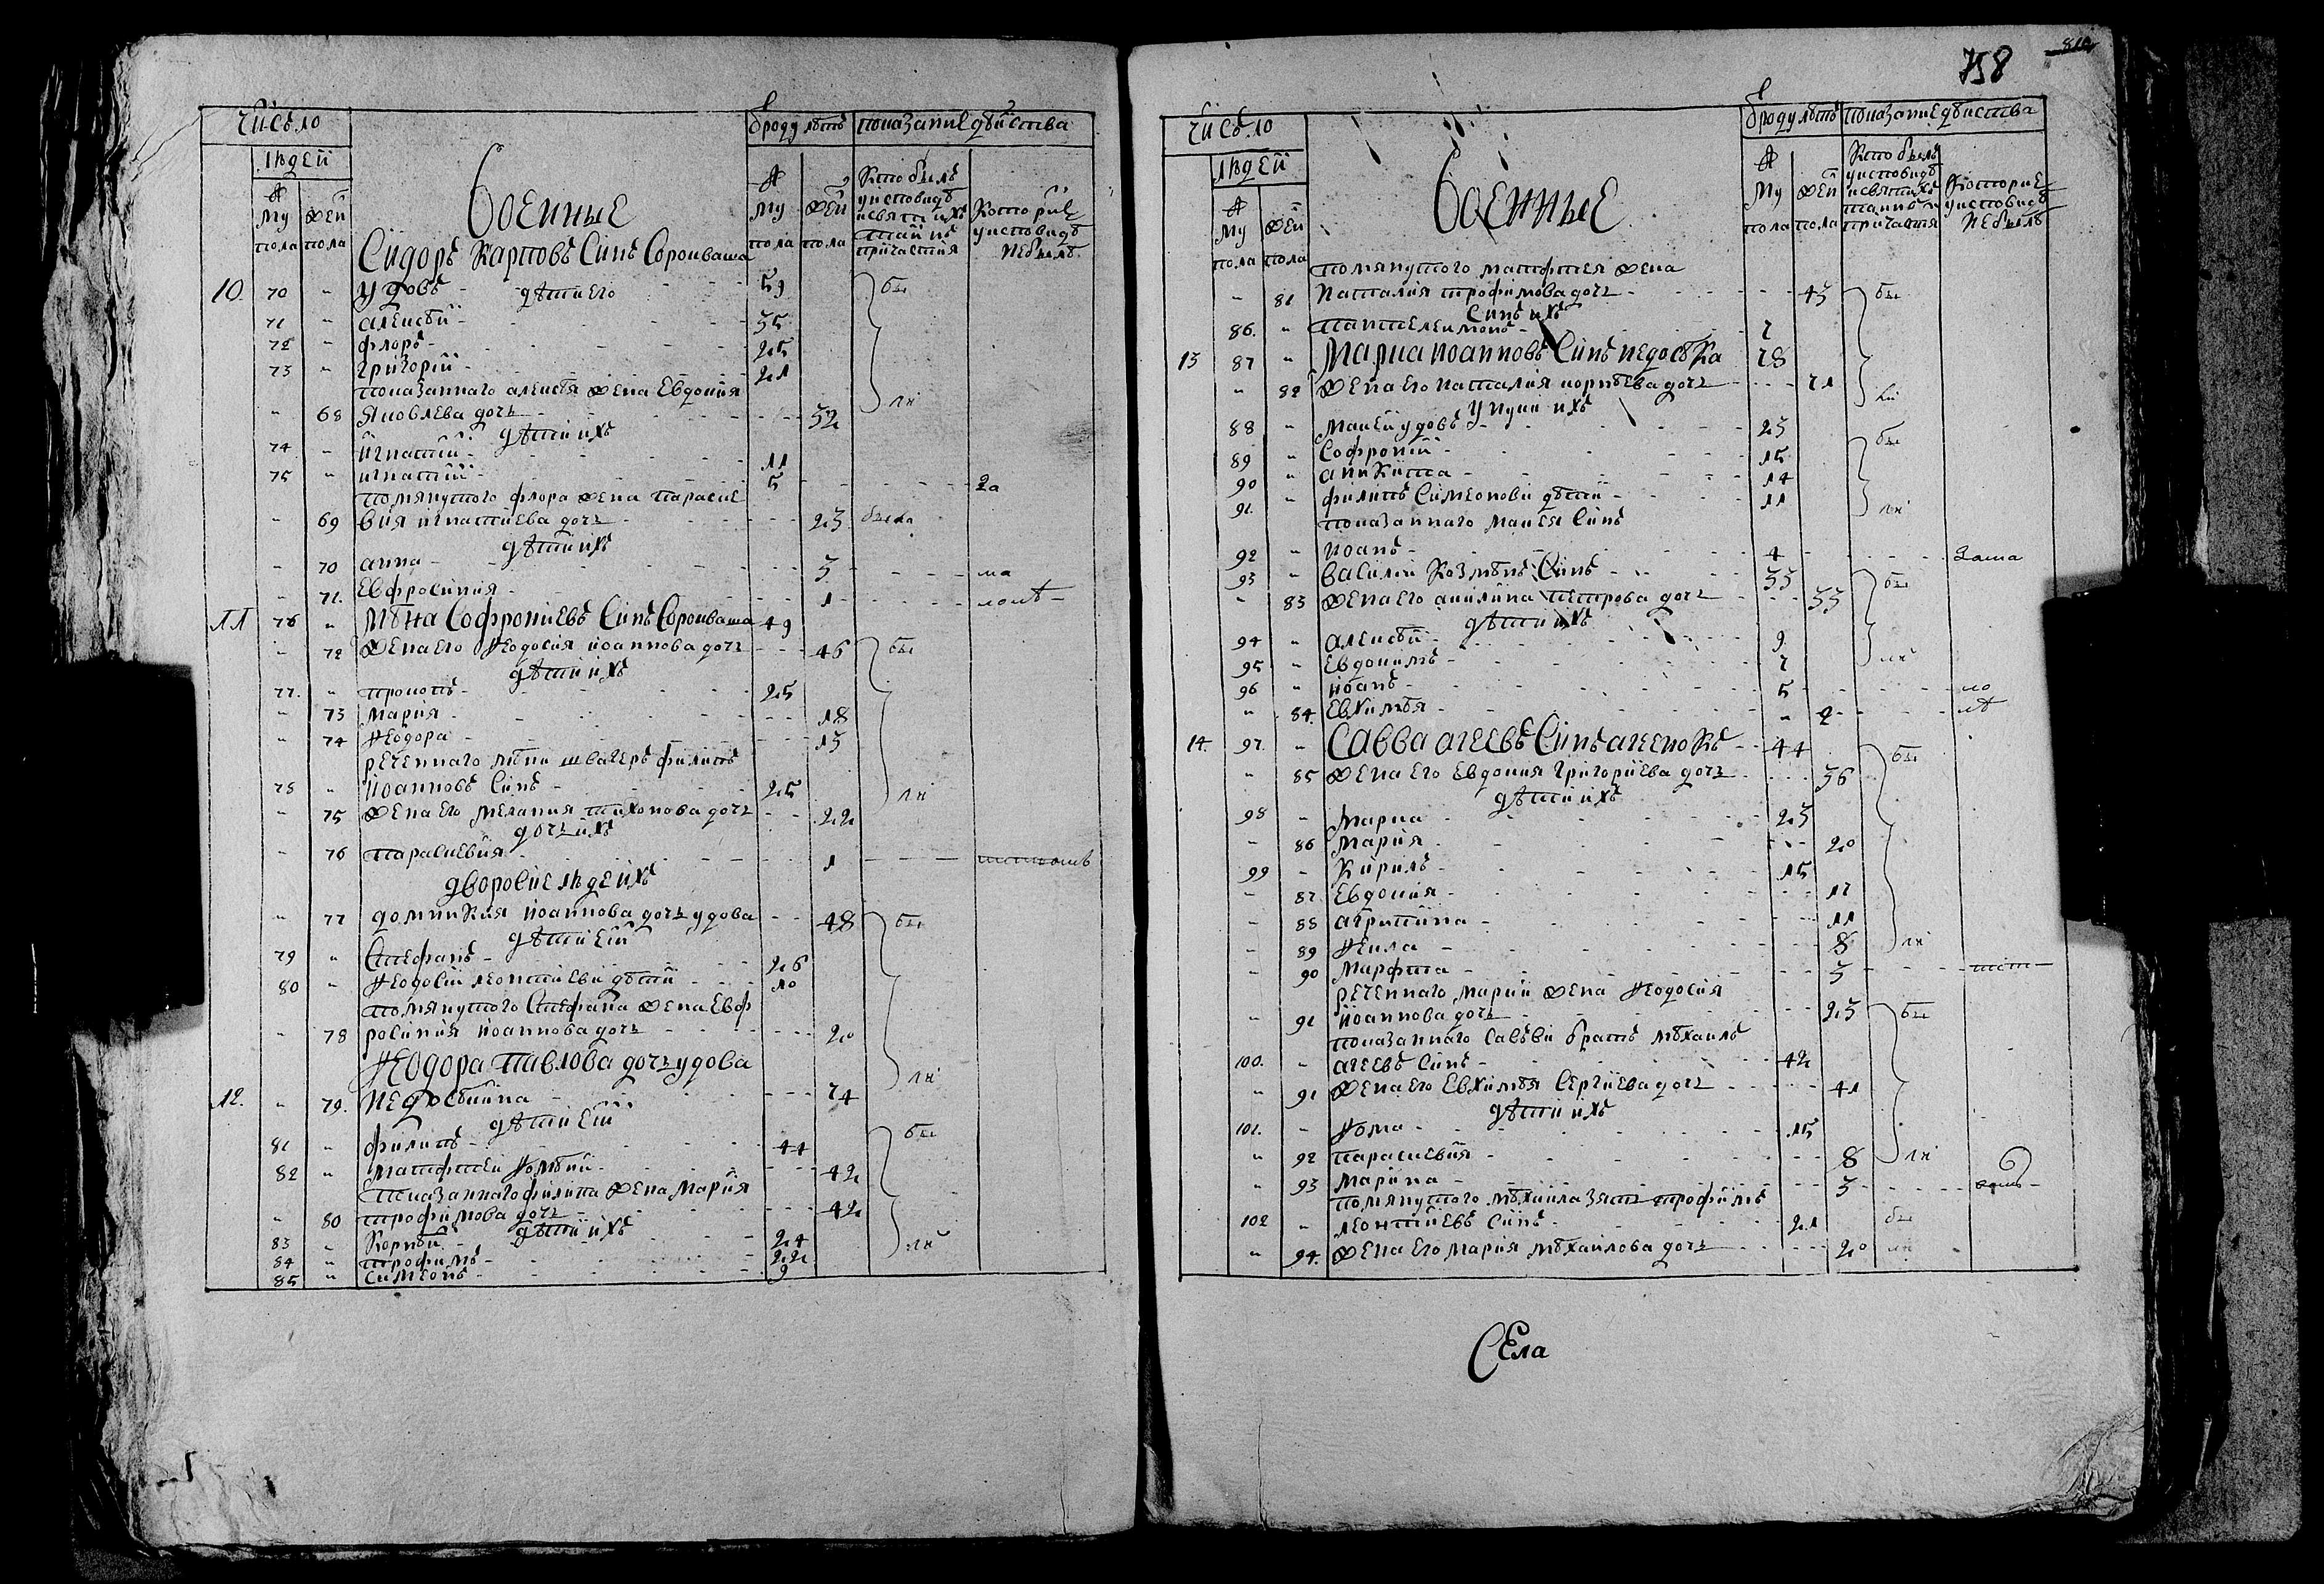 Число
людей
му пола
жен пола
Военные
ѿ роду лѣтъ
му пола
жен пола
показание дѣйства
Кто былъ у исповиди и святихъ таинъ причастия
Которие у исповиди небылъ
Сидоръ Карповъ Синъ Сорокваша
10. 70 " удовъ - 59 бы
дѣти его
71 " алексѣй - 35
72 " флоръ - 25
73 " григорий - 21
показаннаго алексѣя жена Евдокия
" 68 Яковлева дочь - 32 ли
дѣти ихъ
74 " игнатий - 11
75 " игнатий - 5 - за
помянутого флора жена параске
" 69 вия игнатиева дочь - 23 была
дѣти ихъ
" 70 анна - 3 - ма
" 71. Евфросиния - 1 - лолѣ
11 76 " Мѣна Софрониевъ Синъ Сорокваша 49
" 72 жена его Ѳеодосия иоаннова дочь - 46 бы
дѣти ихъ
77. " прокопъ - 25
" 73 мария - 18
" 74 Ѳеодора - 13
реченнаго мѣни швагеръ филипъ
78 " иоанновъ Синъ - 25 ли
" 75 жена его мелания тихонова дочь - 22
дочь ихъ
" 76 параскевия - 1
дворовие люде ихъ
" 77 домникия иоаннова дочь удова - 48 бы
дѣти ей
79 " Стефанъ - 26
80 " Ѳеодосий леонтиеви дѣти - 10
помянутого Стефана жена Евф
" 78 росиния иоаннова дочь - 20
Ѳеодора павлова дочь удова
12. " 79. недосѣкина - 74 ли
дѣти ей
81 " филипъ - 44 бы
82 " матфтей Ѳомѣни - 42
показаннаго филипа жена Мария
" 80 трофимова дочь - 42
дѣти ихъ
83 " Корнѣй - 24 ли
84 " трофимъ - 22
85 " Симеонъ - 9
758
Число
людей
му пола
жен пола
Военные
ѿ роду лѣтъ
му пола
жен пола
показание дѣйства
Кто былъ у исповидѣ и святихъ таинъ причастия
Которие у исповидѣ небылъ
помянутого матфтея жена
" 81 наталия трофимова дочь - 43 бы
Синъ ихъ
86. " пантелеимонъ - 7
13 87 " Марка иоанновъ Синъ недосѣка 78
" 82 жена его наталия корнѣева дочь - 71 ли
унуки ихъ
88 " Макей удовъ - 23
89 " Софроний - 15 бы
90 " аникита - 14
91. " филипъ Симеонови дѣти - 11 ли
показаннаго макея Синъ
92 " иоанъ - 4 - зата
93 " василий Козмѣнъ Синъ - 33 бы
" 83 жена его акилина петрова дочь - 33
дѣти ихъ
94 " алексѣй - 9
95 " Евдокимъ - 7 ли
96 " иоанъ - 5 - ло
" 84. Евхимѣя - 2 - лѣ
14. 97. " Савва агеевъ Синъ агеенокъ - 44 бы
" 85 жена его Евдокия григориева дочь - 36
дѣти ихъ
98 " Марка - 23
" 86 Мария - 20
99 " Кирилъ - 15
" 87. Евдокия - 17
" 88 агрипина - 11
" 89 Ѳекла - 8 ли
" 90 Марфта - 3
реченнаго марки жена Ѳеодосия
" 91 иоаннова дочь - 23 бы
показаннаго савѣви братъ мѣхаилъ
100. " агеевъ синъ - 42
" 91 жена его Евхимѣя Сергиева дочь - 41
дѣти ихъ
101. " Ѳома - 15
" 92 параскевия - 8 ли
" 93 марина - 3
помянутого мѣхаила зять трофимъ
102 " леонтиевъ синъ - 21 бы
" 94. жена его мария мѣхаилова дочь - 20 ли
Села